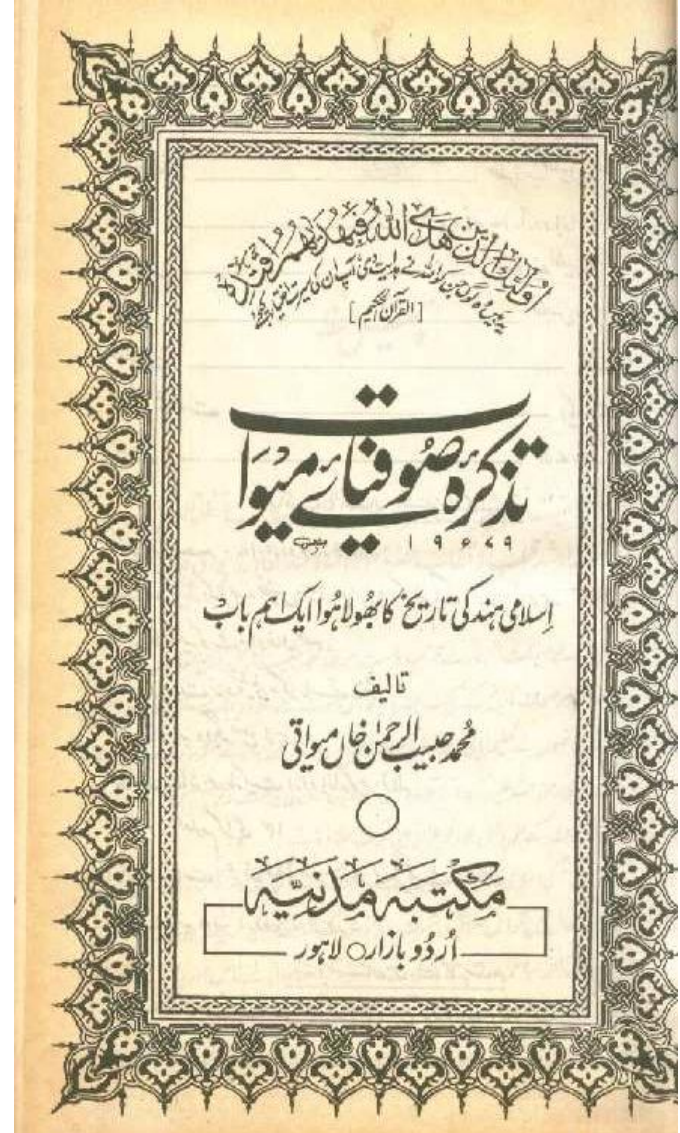 اُولٰئِكَ الَّذِيْنَ هَدَى اللّٰهُ فَبِهُدٰهُمُ اقْتَدِهْ
یہ ہیں وہ لوگ جن کو اللہ نے ہدایت دی، آپ ان کی سیرت
[القرآن الحکیم]
تذکرۂ صوفیائے میوات
۱۹۶۷۹
اِسلامی ہند کی تاریخ کا بھُولا ہُوا ایک اہم باب
تالیف
مُحمّد حبیب الرحمٰن خاں میواتی
مکتبہ مدنیّہ
اُردُو بازار ○ لاہور